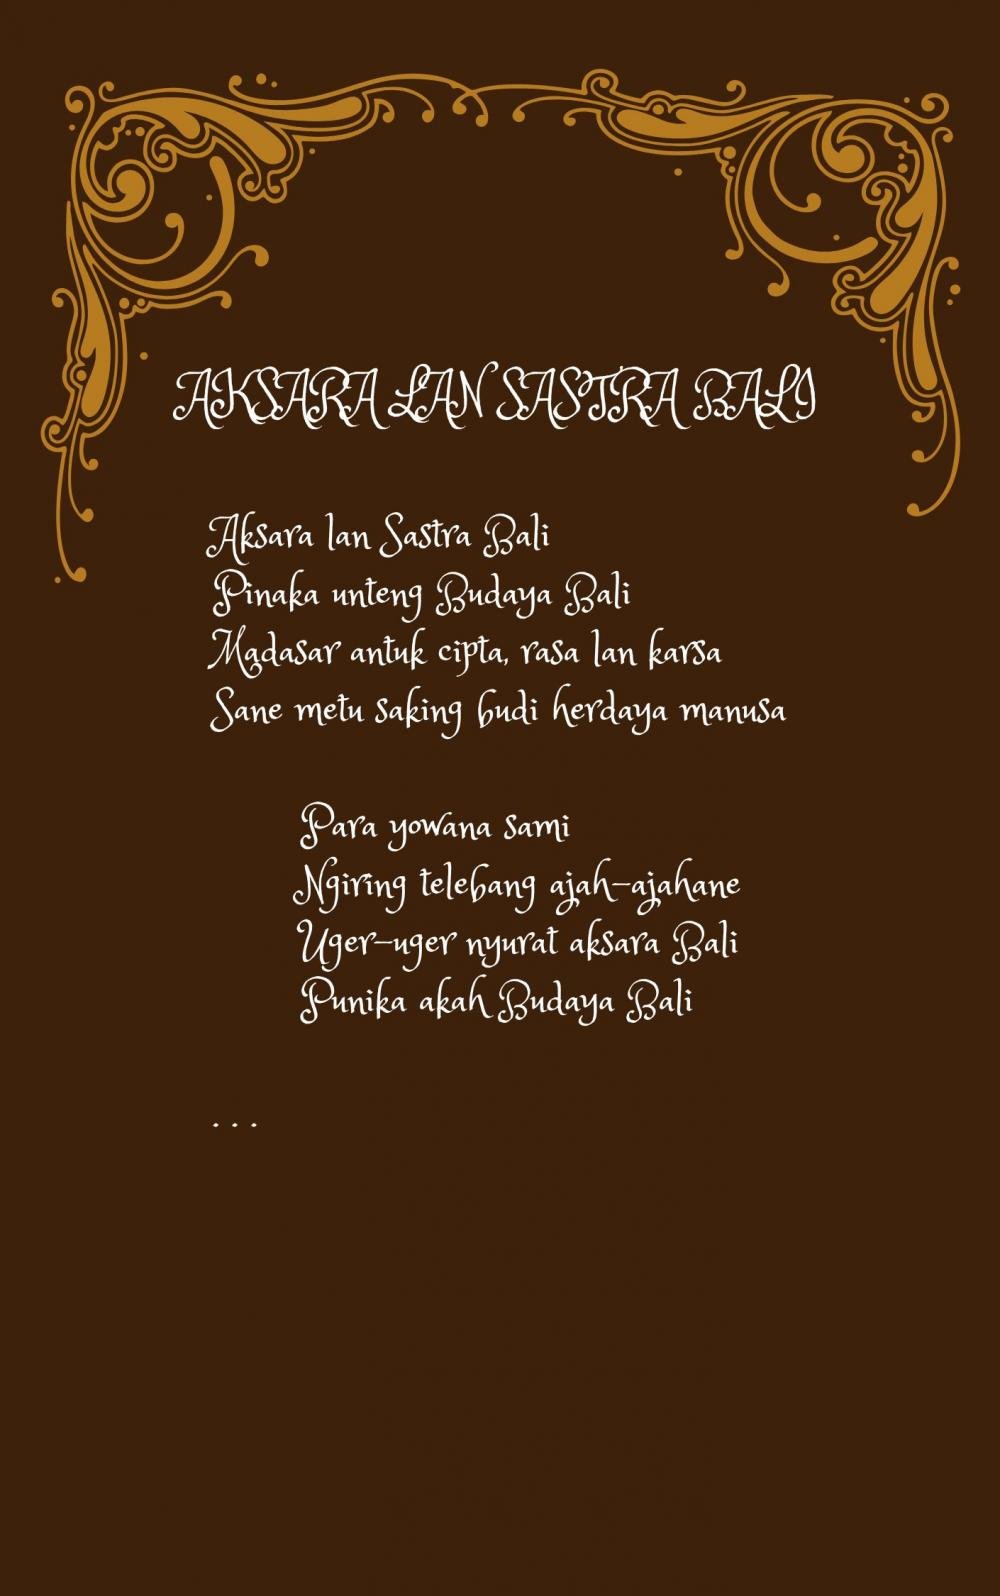 AKSARA LAN SASTRA BALI
Aksara lan Sastra Bali
Pinaka unteng Budaya Bali
Madasar antuk cipta, rasa lan karsa
Sane metu saking budi herdaya manusa
Para yowana sami
Ngiring telebang ajah-ajahane
Uger-uger nyurat aksara Bali
Punika akah Budaya Bali
. . .